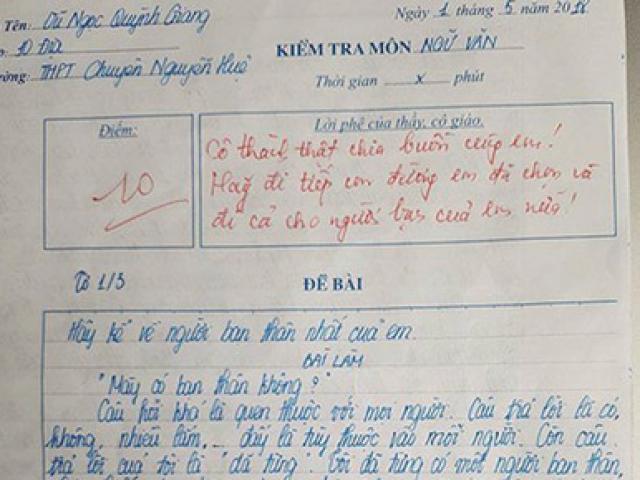 Tên: Vũ Ngọc Quỳnh Giang
Ngày 1 tháng 5 năm 2018
10 Địa
KIỂM TRA MÔN NGỮ VĂN
THPT Chuyên Nguyễn Huệ
Thời gian x phút
Điểm:
Lời phê của thầy, cô giáo.
10
Cô thành thật chia buồn cùng em!
Hãy đi tiếp con đường em đã chọn và
đi cả cho người bạn của em nữa!
Tờ 1/3
ĐỀ BÀI
Hãy kể về người bạn thân nhất của em.
BÀI LÀM
"Mày có bạn thân không?"
Câu hỏi khá là quen thuộc với mọi người. Câu trả lời là có,
không, nhiều lắm,... đấy là tùy thuộc vào mỗi người. Còn câu
trả lời của tôi là "đã từng". Tôi đã từng có một người bạn thân,